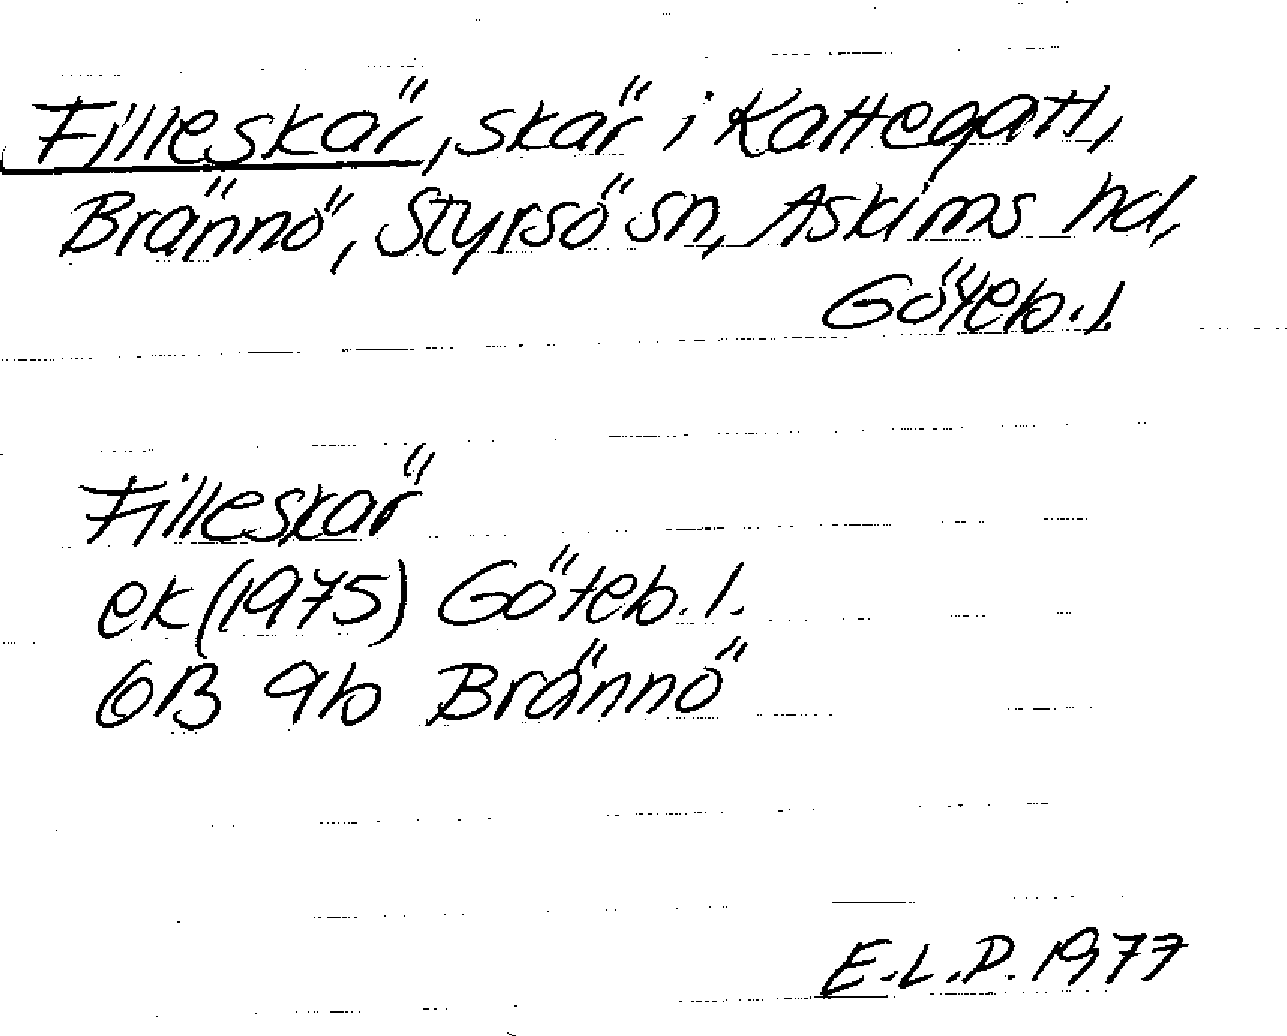 Filleskär, skär i Kattegatt,
Brännö, Styrsö sn, Askims hd,
Göteb. l.
Filleskär
ek (1975) Göteb. l.
6B 9b Brännö
E.L.P. 1977